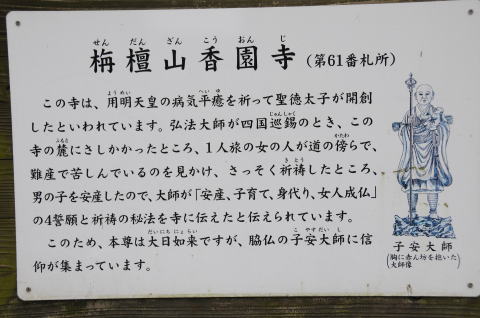 栴檀山香園寺（第61番札所）
この寺は、用明天皇の病気平癒を祈って聖徳太子が開創
したといわれています。弘法大師が四国巡錫のとき、この
寺の麓にさしかかったところ、1人旅の女の人が道の傍らで、
難産で苦しんでいるのを見かけ、さっそく祈祷したところ、
男の子を安産したので、大師が「安産、子育て、身代り、女人成仏」
の4誓願と祈祷の秘法を寺に伝えたと伝えられています。
このため、本尊は大日如来ですが、脇仏の子安大師に信
仰が集まっています。
子安大師
(胸に赤ん坊を抱いた
大師像)